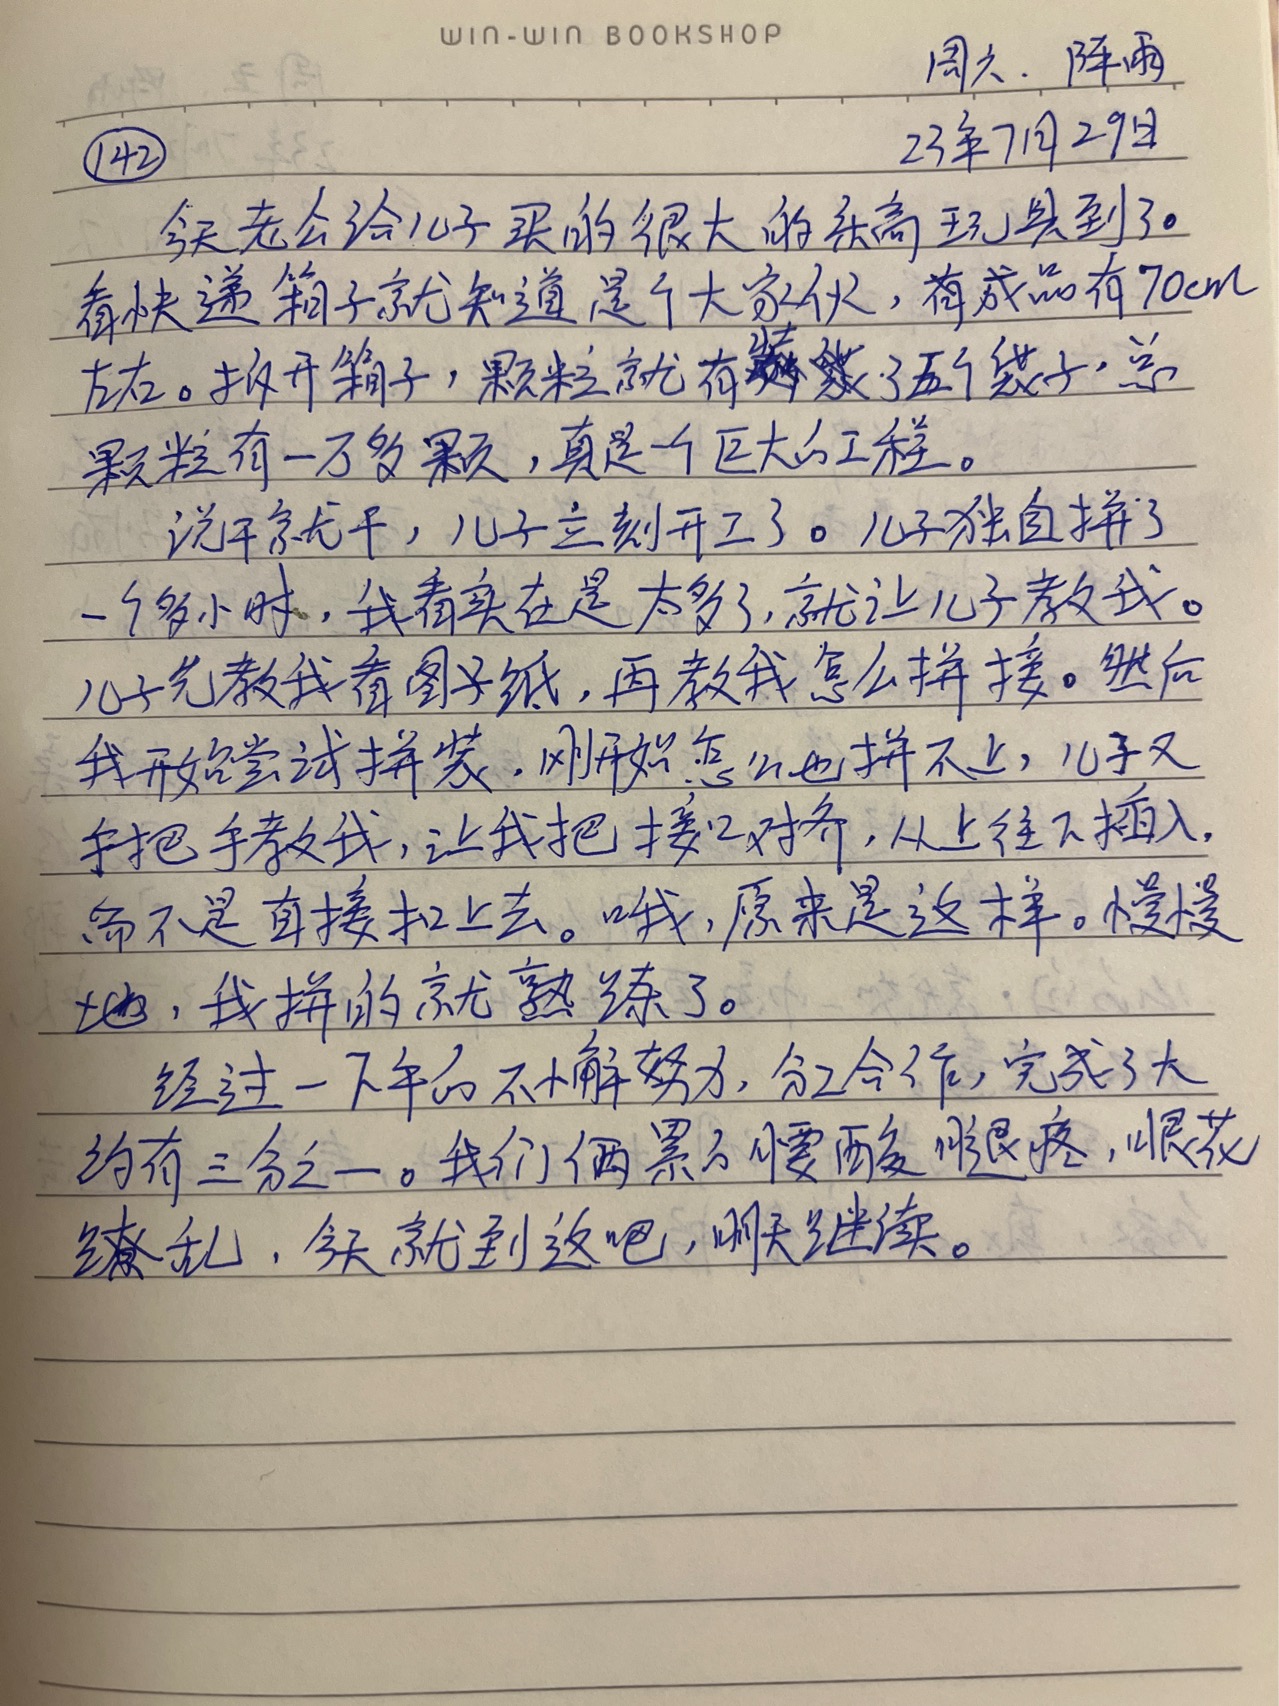 WIN-WIN BOOKSHOP
周六. 阵雨
142 23年7月29日
今天老公给儿子买的很大的乐高玩具到了。
看快递箱子就知道是个大家伙，看成品有70cm
左右。拆开箱子，颗粒就有装了五个袋子，总
颗粒有一万多颗，真是一个巨大的工程。
说干就干，儿子立刻开工了。儿子独自拼了
一个多小时，我看实在是太多了，就让儿子教我。
儿子先教我看图子纸，再教我怎么拼接。然后
我开始尝试拼装，刚开始怎么也拼不上，儿子又
手把手教我，让我把接口对齐，从上往下插入，
而不是直接扣上去。哦，原来是这样。慢慢
地，我拼的就熟练了。
经过一下午的不懈努力，分工合作，完成了大
约有三分之一。我们俩累的腰酸腿疼，眼花
缭乱，今天就到这吧，明天继续。